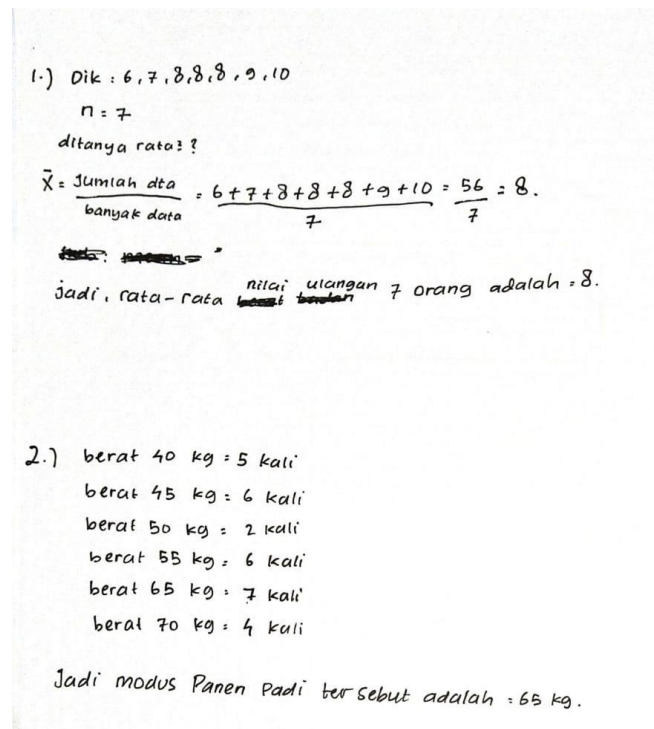 1.) Dik : 6, 7, 8, 8, 8, 9, 10
n = 7
ditanya rata² ?
x̄ = Jumlah dta / banyak data = 6+7+8+8+8+9+10 / 7 = 56 / 7 = 8.
jadi, rata-rata nilai ulangan 7 orang adalah = 8.
2.) berat 40 kg = 5 kali
berat 45 kg = 6 kali
berat 50 kg = 2 kali
berat 55 kg = 6 kali
berat 65 kg = 7 kali
berat 70 kg = 4 kali
Jadi modus Panen Padi tersebut adalah = 65 kg.